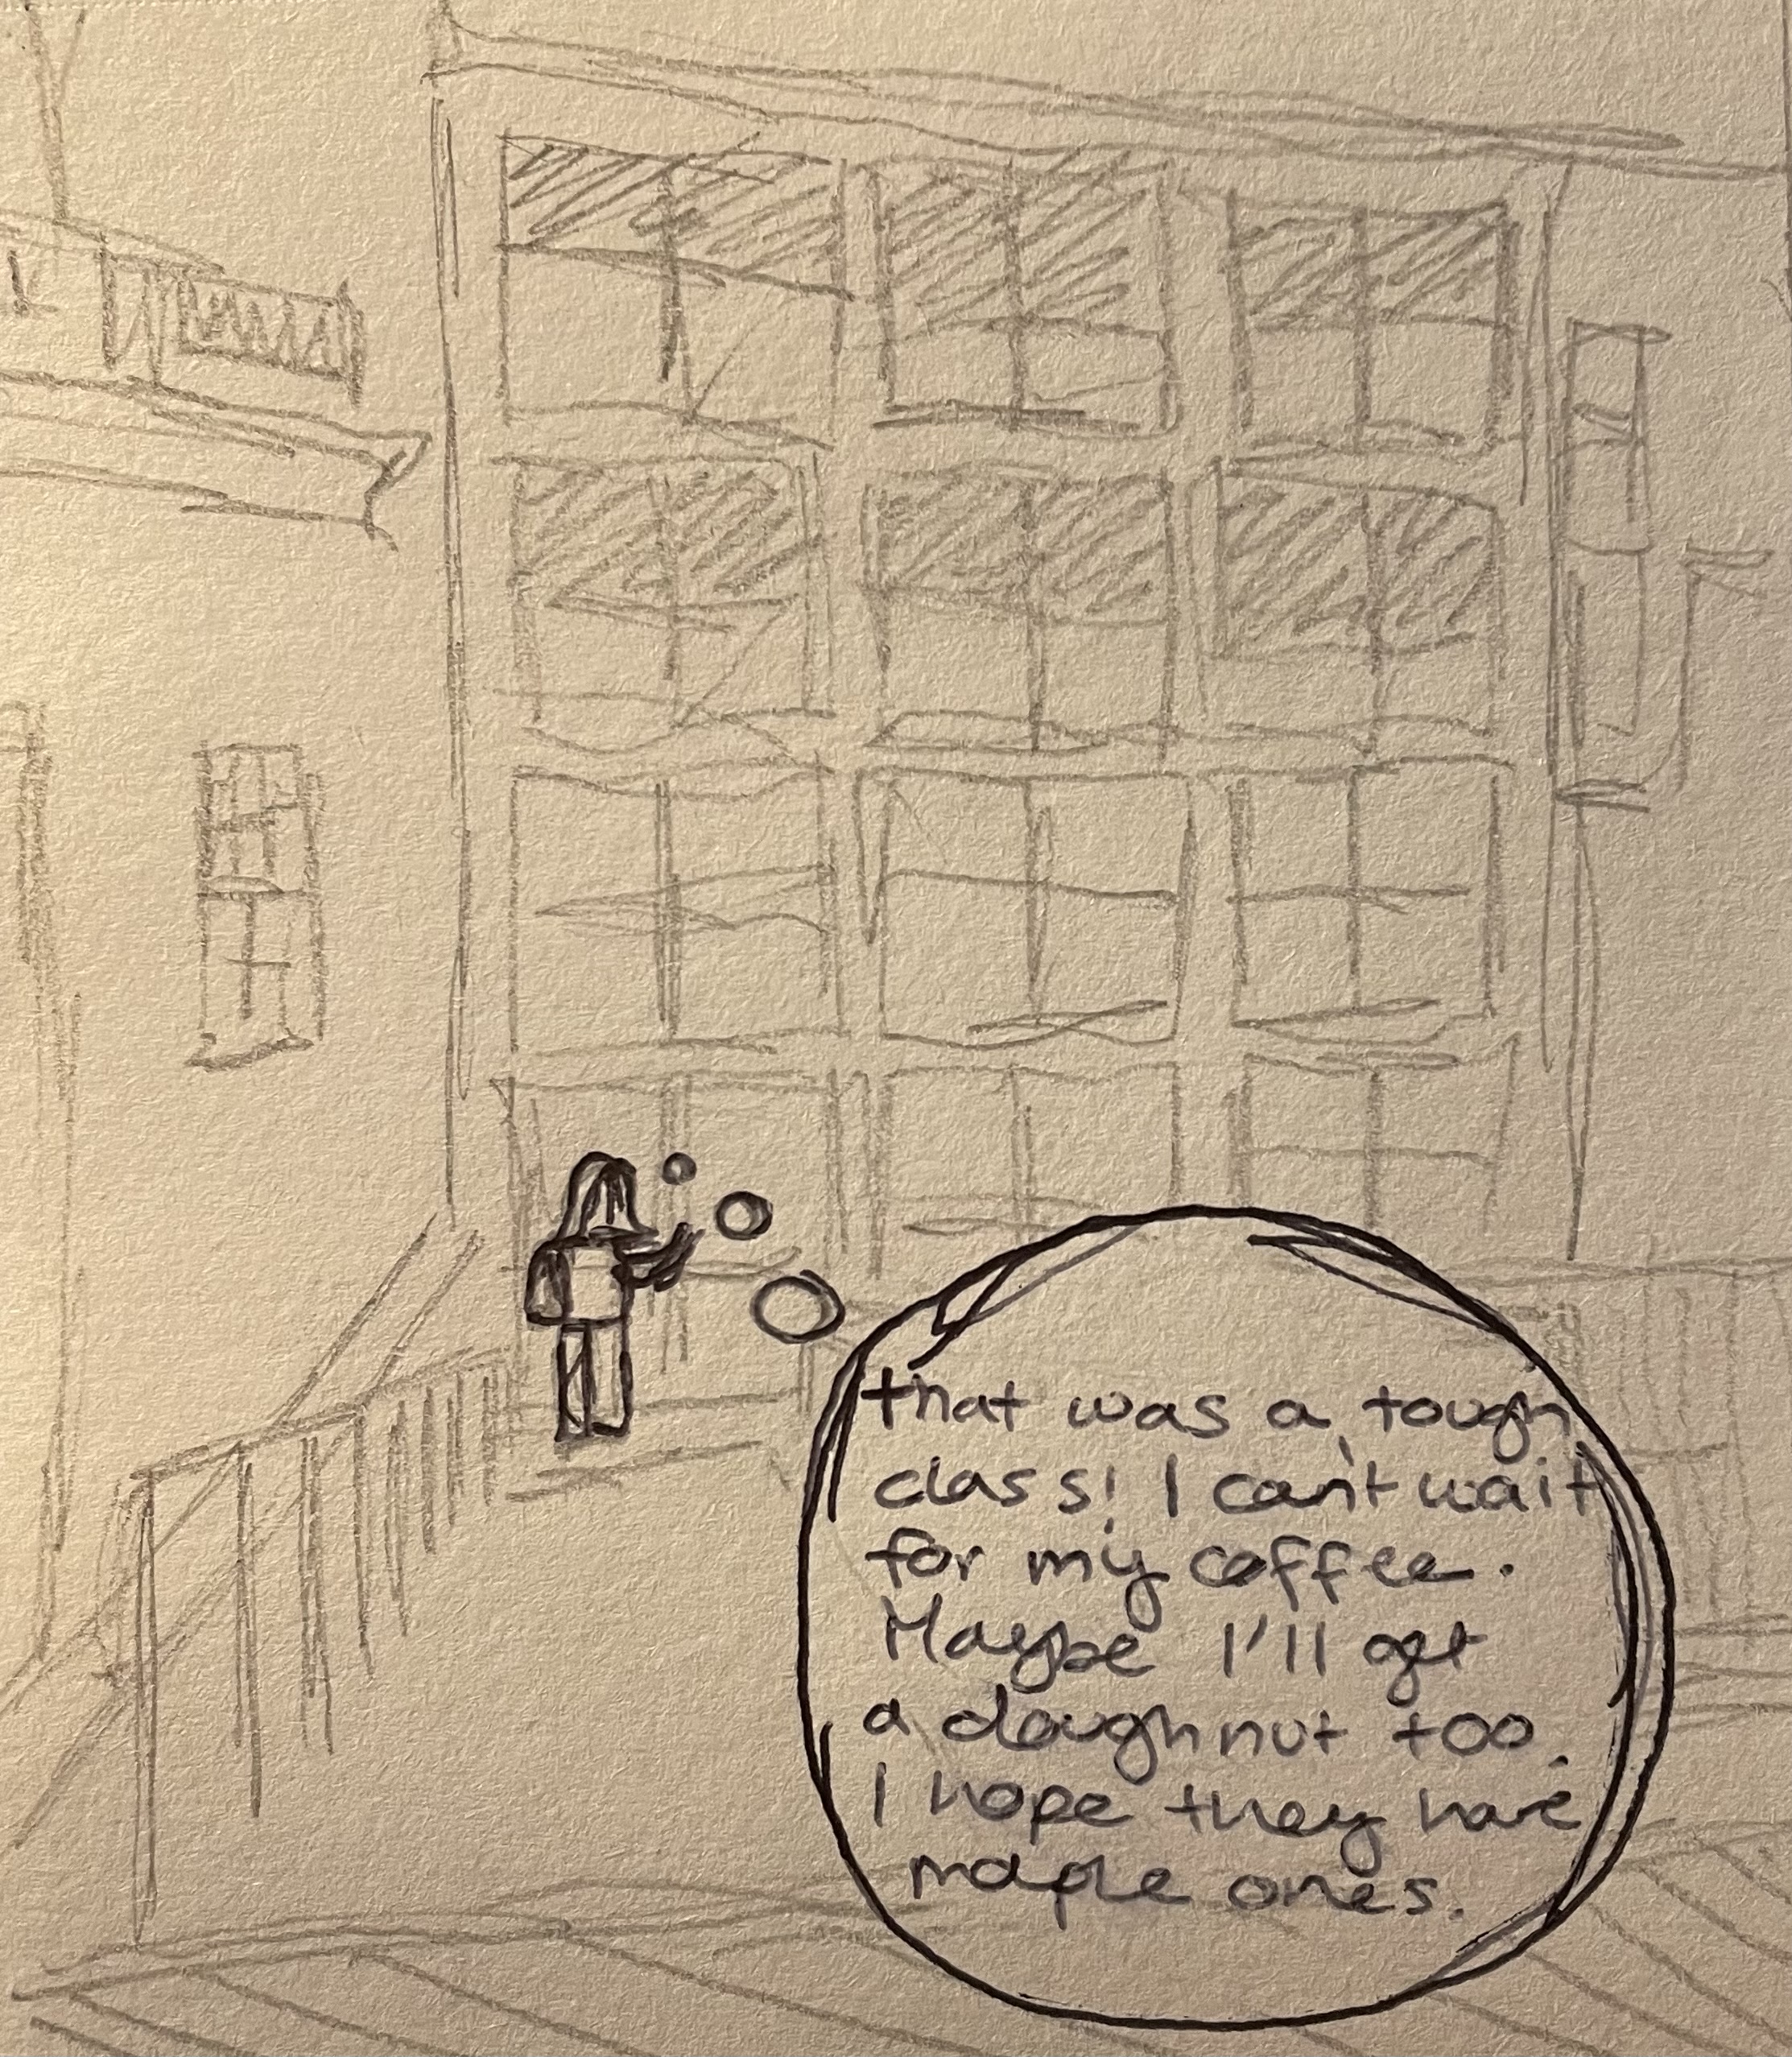 that was a tough
class! I can't wait
for my coffee.
Maybe I'll get
a doughnut too.
I hope they have
maple ones.